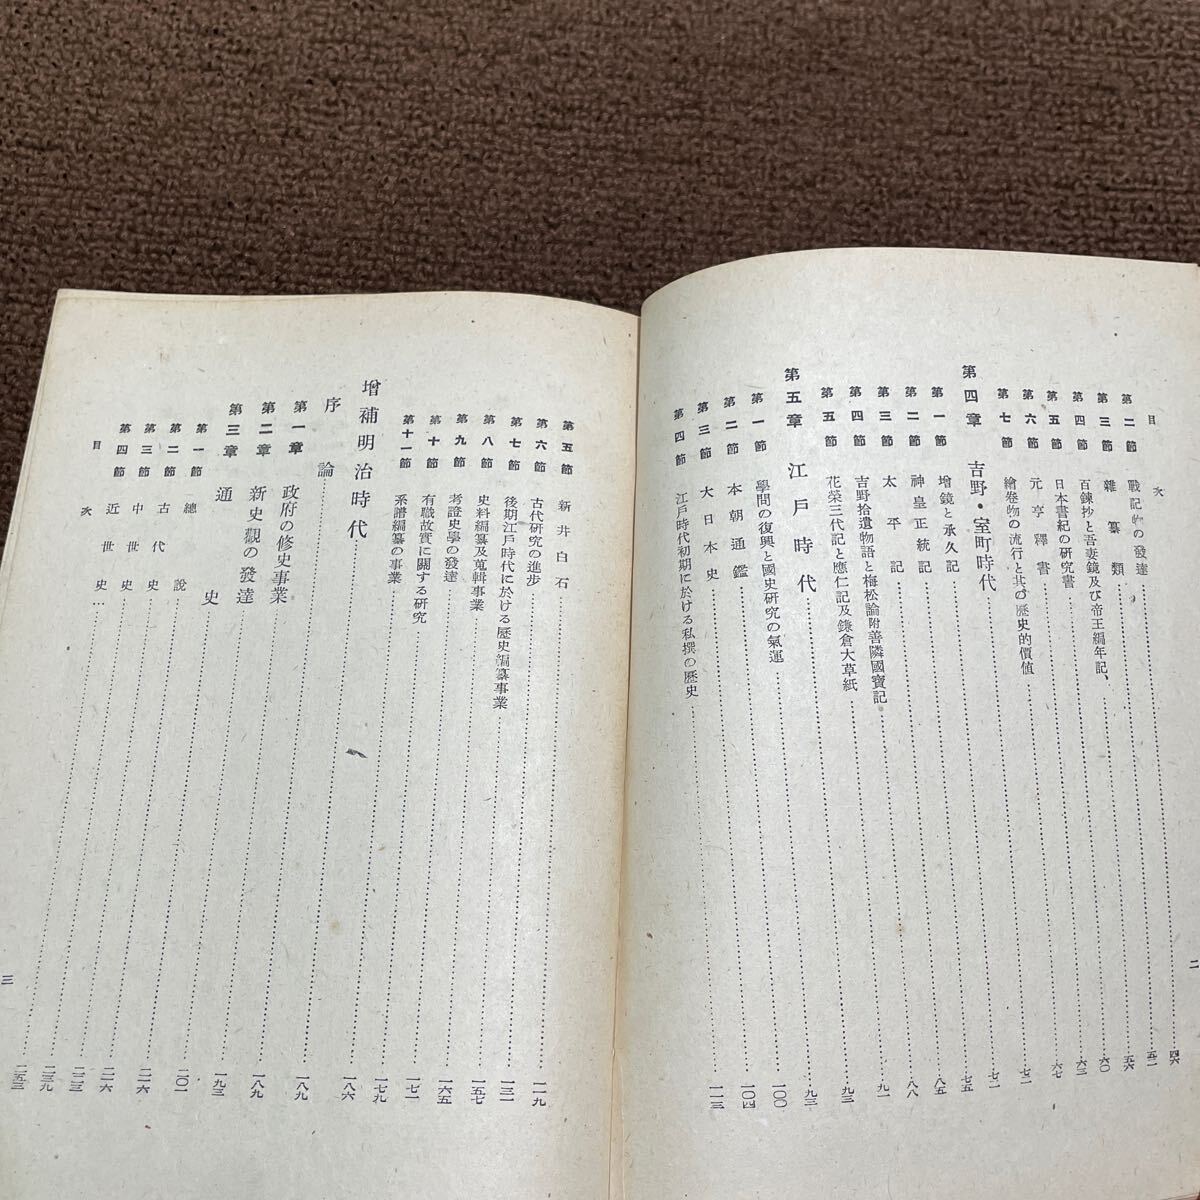 目次
第二節 戰記物の發達……四六
第三節 雜纂類……五二
第四節 百鍊抄と吾妻鏡及び帝王編年記……五六
第五節 日本書紀の研究書……六〇
第六節 元亨釋書……六三
第七節 繪卷物の流行と其の歷史的價値……六七
第四章 吉野・室町時代……七二
第一節 增鏡と承久記……七二
第二節 神皇正統記……七五
第三節 太平記……八五
第四節 吉野拾遺物語と梅松論附善隣國寶記……八八
第五節 花榮三代記と應仁記及鎌倉大草紙……九一
第五章 江戸時代……九三
第一節 學問の復興と國史研究の氣運……九三
第二節 本朝通鑑……一〇〇
第三節 大日本史……一〇四
第四節 江戸時代初期に於ける私撰の歷史……一一三
二
第五節 新井白石……一一九
第六節 古代研究の進步……一三一
第七節 後期江戸時代に於ける歷史編纂事業……一五七
第八節 史料編纂及蒐輯事業……一六五
第九節 考證史學の發達……一七一
第十節 有職故實に關する研究……一七九
第十一節 系譜編纂の事業……一八六
增補明治時代……一八九
序論……一八九
第一章 政府の修史事業……一九三
第二章 新史觀の發達……二〇一
第三章 通史……二一六
第一節 總說……二一六
第二節 古代史……二三三
第三節 中世史……二三九
第四節 近世史……二五三
目次
三